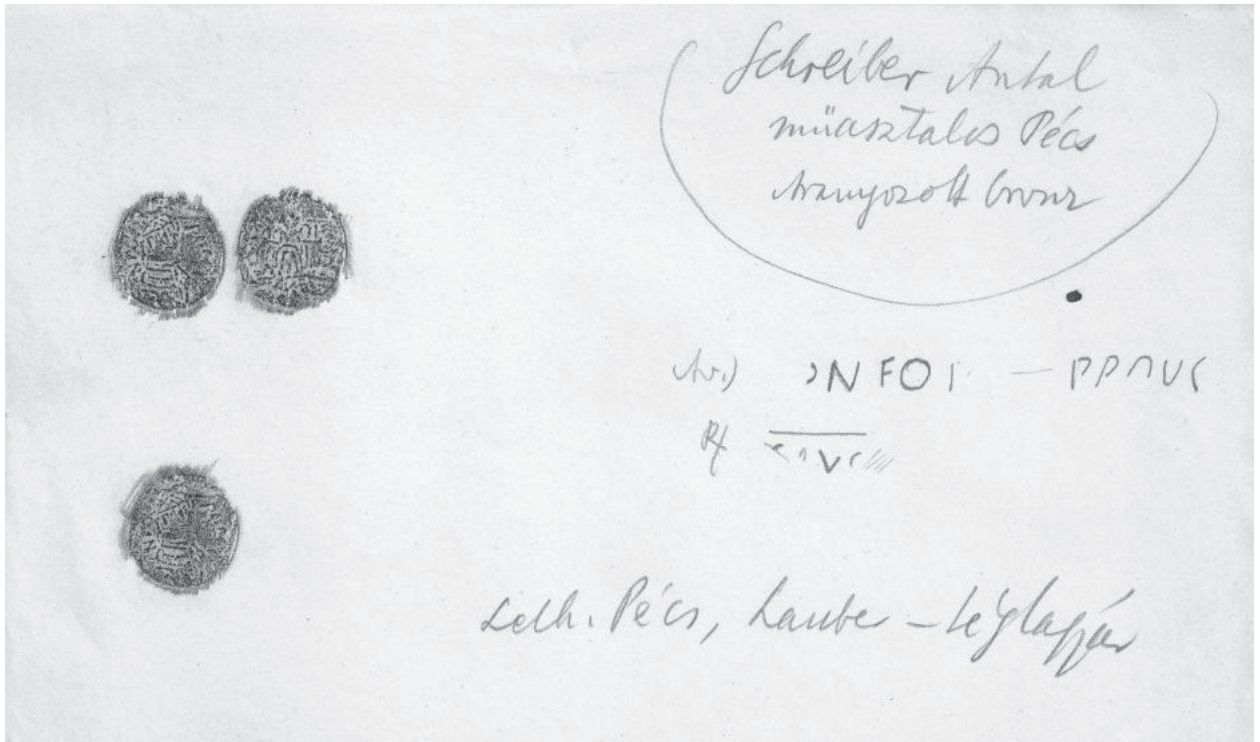 Schreiber Antal
műasztalos Pécs
Aranyozott bronz
Av.) ƆN FOI — PPΛVC
Rf
Lelh. Pécs, Lauber-téglagyár